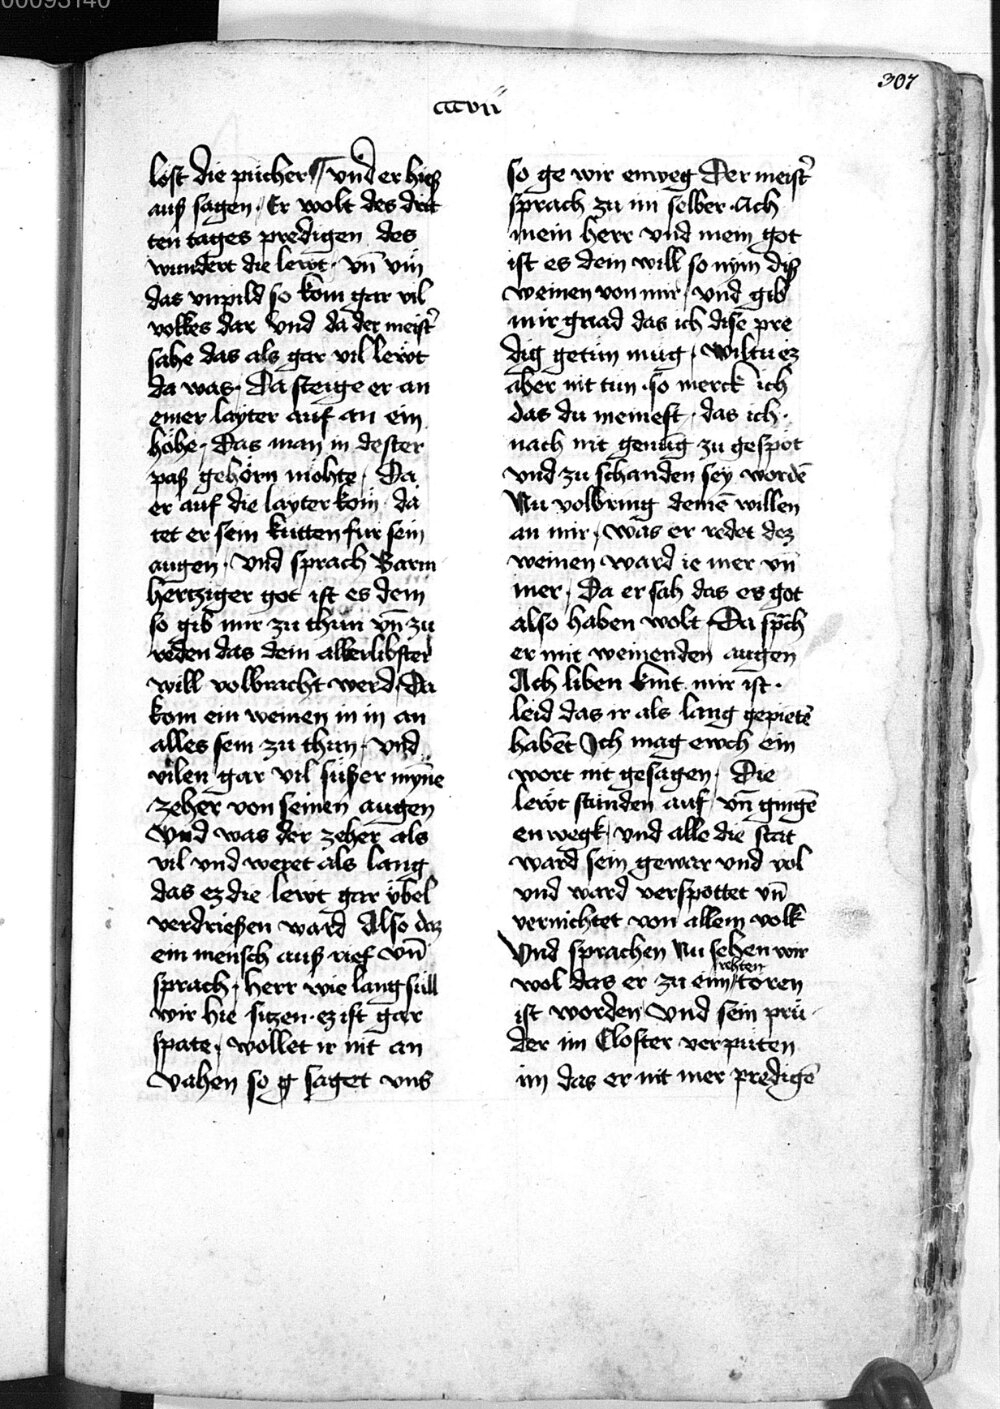 00093140
307
cccvii
lost die pücher / vnd er hieß
auß sagen · Er wolt des drit
ten tages predigen des
wundert die lewt · vn̄ vm̄
das vnpild so kom gar vil
volkes dar Vnd da der meist̄
sahe das als gar vil lewt
da was · Da steige er an
einer layter auf an ein
höhe · Das man in dester
paß gehörn möhte · Da
er auf die layter kom · da
tet er sein kutten fur sein
augen · Vnd sprach Barm
hertziger got ist es dein
so gib mir zu thun vn̄ zu
reden das dein allerlibster
will volbracht werd · Da
kom ein weinen in in an
alles sein zu thun · Vnd
vilen gar vil süßer mȳne
zeher von seinen augen
Vnd was der zeher als
vil vnd weret als lang
das ez die lewt gar übel
verdrießen ward Also daz
ein mensch auß rief Vn̄
sprach · herr wie lang süll
wir hie sitzen · ez ist gar
spate · wöllet ir nit an
vahen so g saget vns
so ge wir enweg Der meist̄
sprach zu im selber · Ach
mein herr vnd mein got
ist es dein will so nym diß
weinen von mir / vnd gib
mir gnad das ich dise pre
dig getun müg · wiltu ez
aber nit tun · so merck ich
das du meinest · das ich ·
nach nit genüg zu gespöt
vnd zu schanden sey wordē
Nu volbring deinē willen
an mir · was er redet dez
weinen ward ie mer vn̄
mer · Da er sah das es got
also haben wolt · Da sp̄ch
er mit weinenden augen
Ach liben kint mir ist ·
leid das ir als lang gepietē
habēt Ich mag ewch ein
wort nit gesagen · Die
lewt stunden auf vn̄ gingē
en wegk · vnd alle die stat
ward sein gewar vnd vol
vnd ward verspottet vn̄
vernichtet von allem volk
Vnd sprachen Nu sehen wir
rehten
wol das er zu eim toren
ist worden Vnd sein prü ·
der im Closter verputen
im das er nit mer predigē